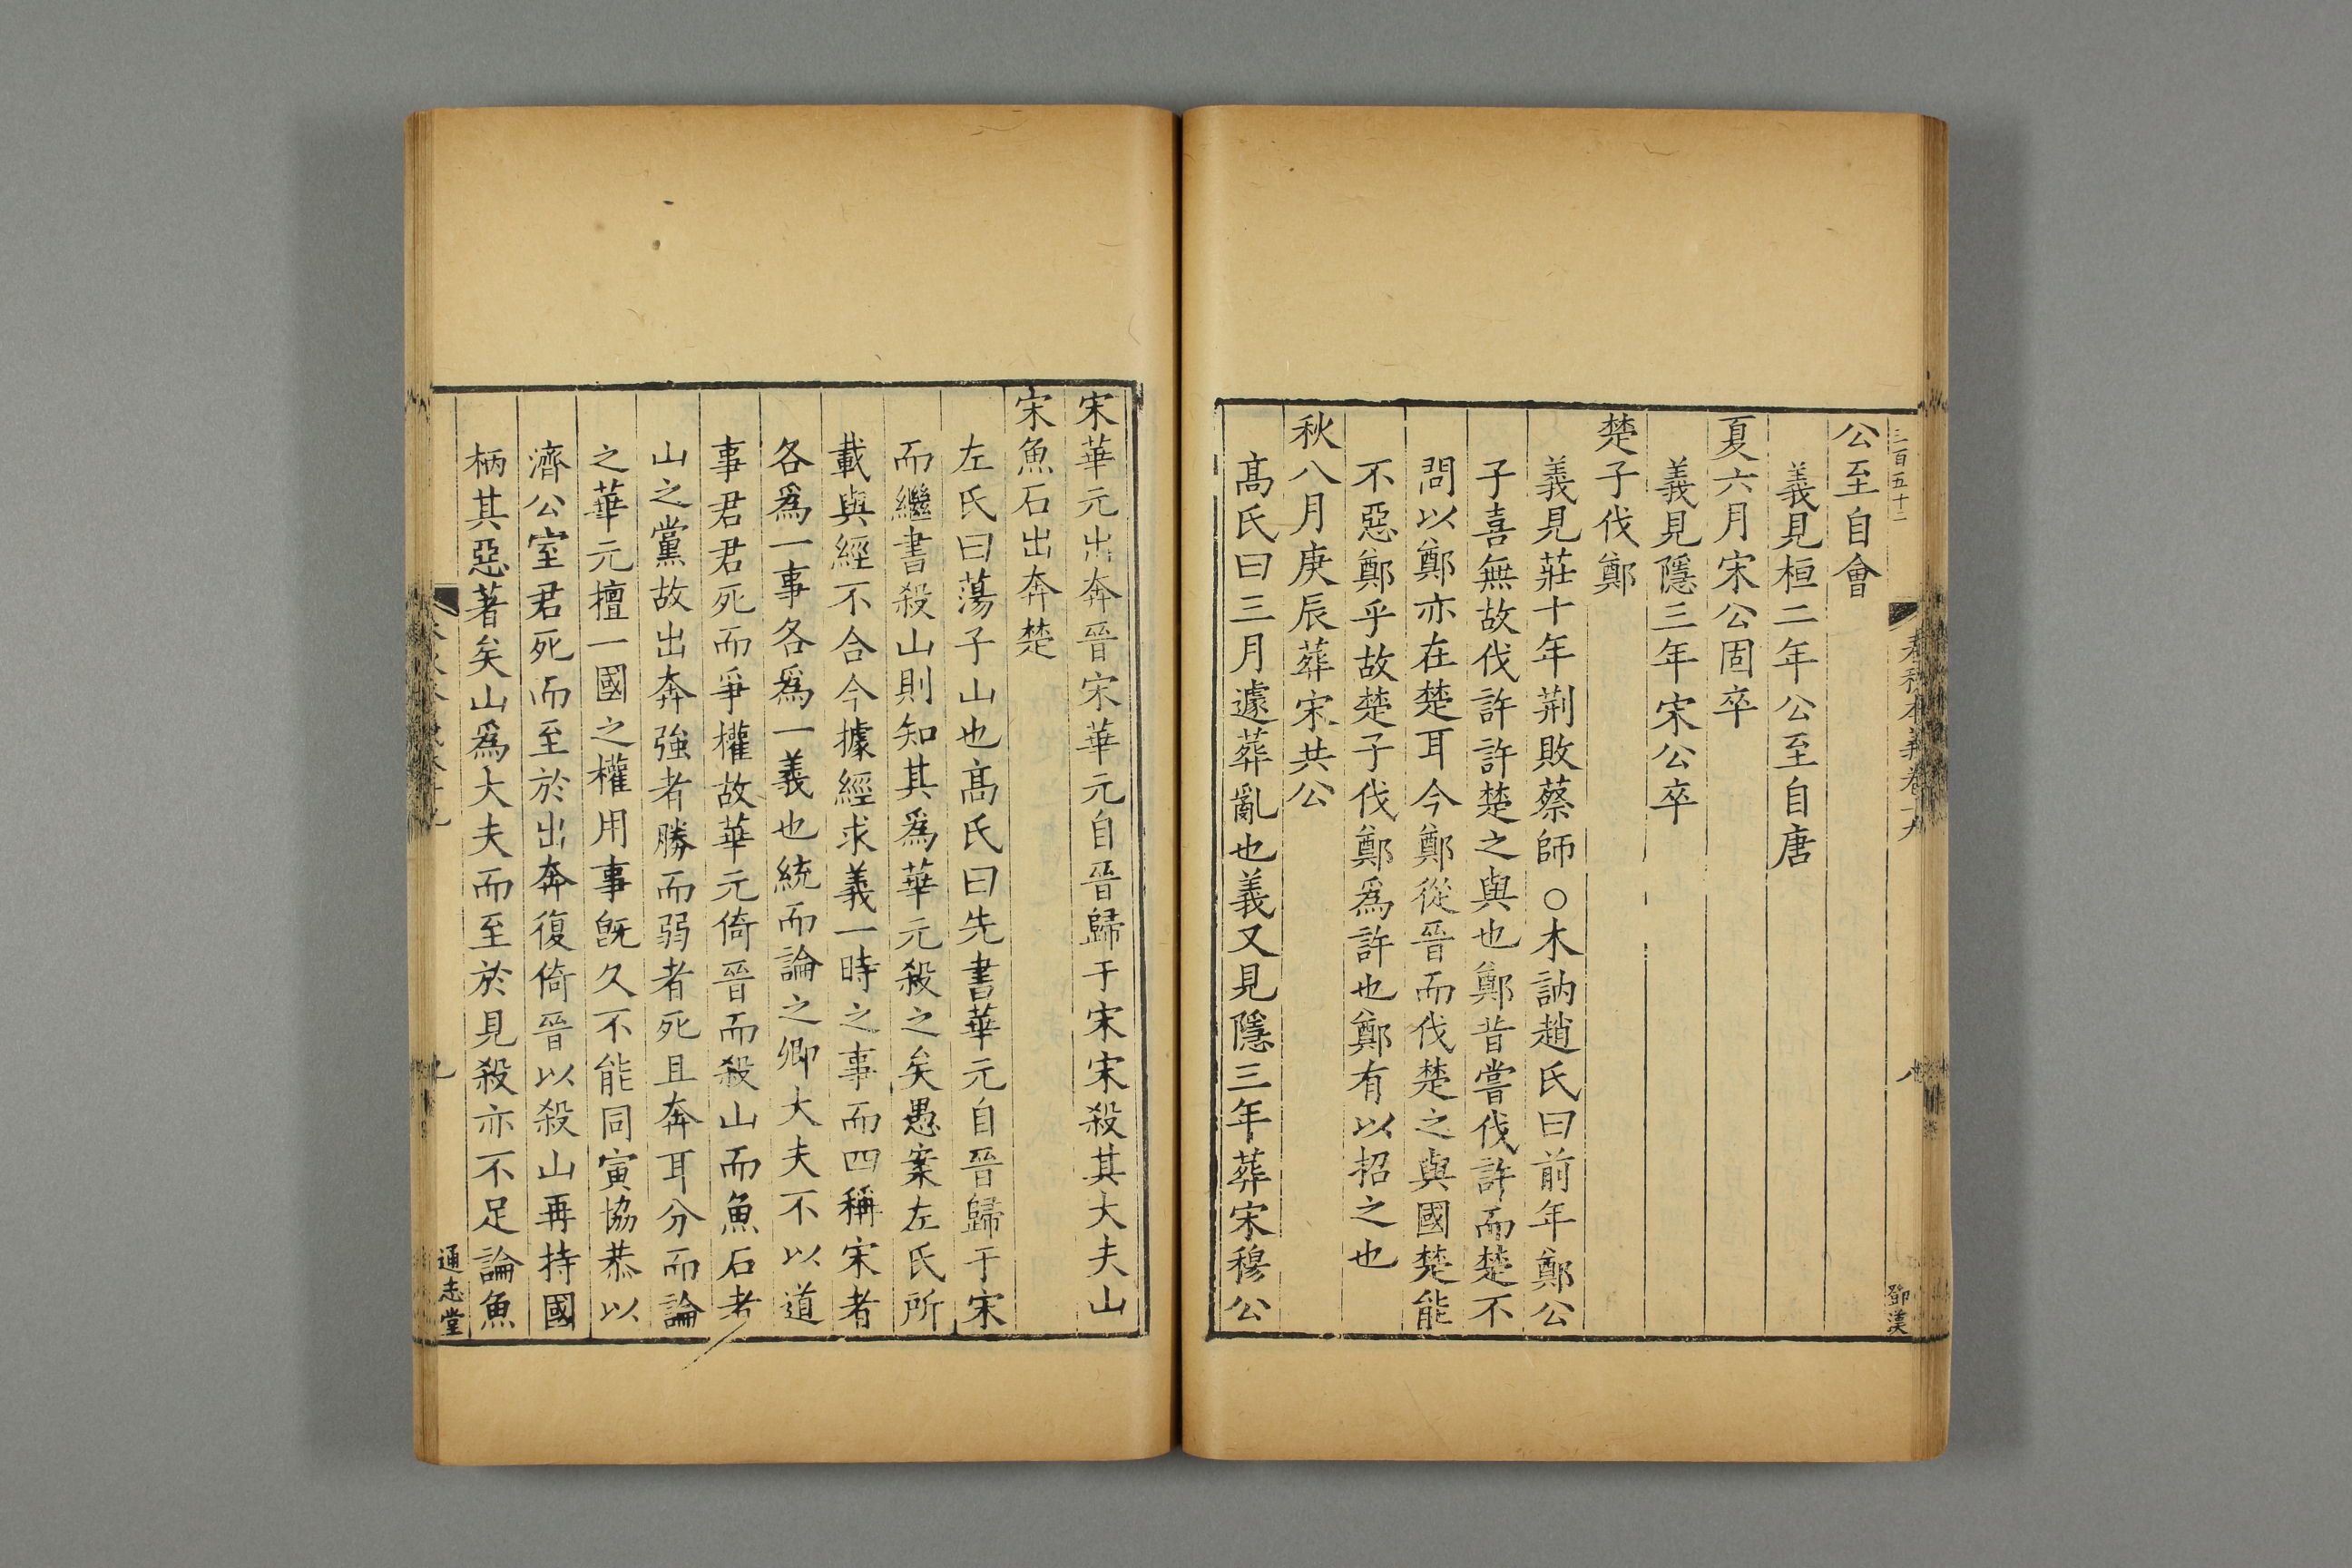 三百五十二
春秋本義卷十九
八
鄧漢
公至自會
義見桓二年公至自唐
夏六月宋公固卒
義見隱三年宋公卒
楚子伐鄭
義見莊十年荆敗蔡師○木訥趙氏曰前年鄭公
子喜無故伐許許楚之與也鄭昔嘗伐許而楚不
問以鄭亦在楚耳今鄭從晉而伐楚之與國楚能
不惡鄭乎故楚子伐鄭爲許也鄭有以招之也
秋八月庚辰葬宋共公
髙氏曰三月遽葬亂也義又見隱三年葬宋穆公
宋華元出奔晉宋華元自晉歸于宋宋殺其大夫山
宋魚石出奔楚
左氏曰蕩子山也髙氏曰先書華元自晉歸于宋
而繼書殺山則知其爲華元殺之矣愚案左氏所
載與經不合今據經求義一時之事而四稱宋者
各爲一事各爲一義也統而論之卿大夫不以道
事君君死而爭權故華元倚晉而殺山而魚石者
山之黨故出奔強者勝而弱者死且奔耳分而論
之華元擅一國之權用事旣久不能同寅協恭以
濟公室君死而至於出奔復倚晉以殺山再持國
柄其惡著矣山爲大夫而至於見殺亦不足論魚
通志堂